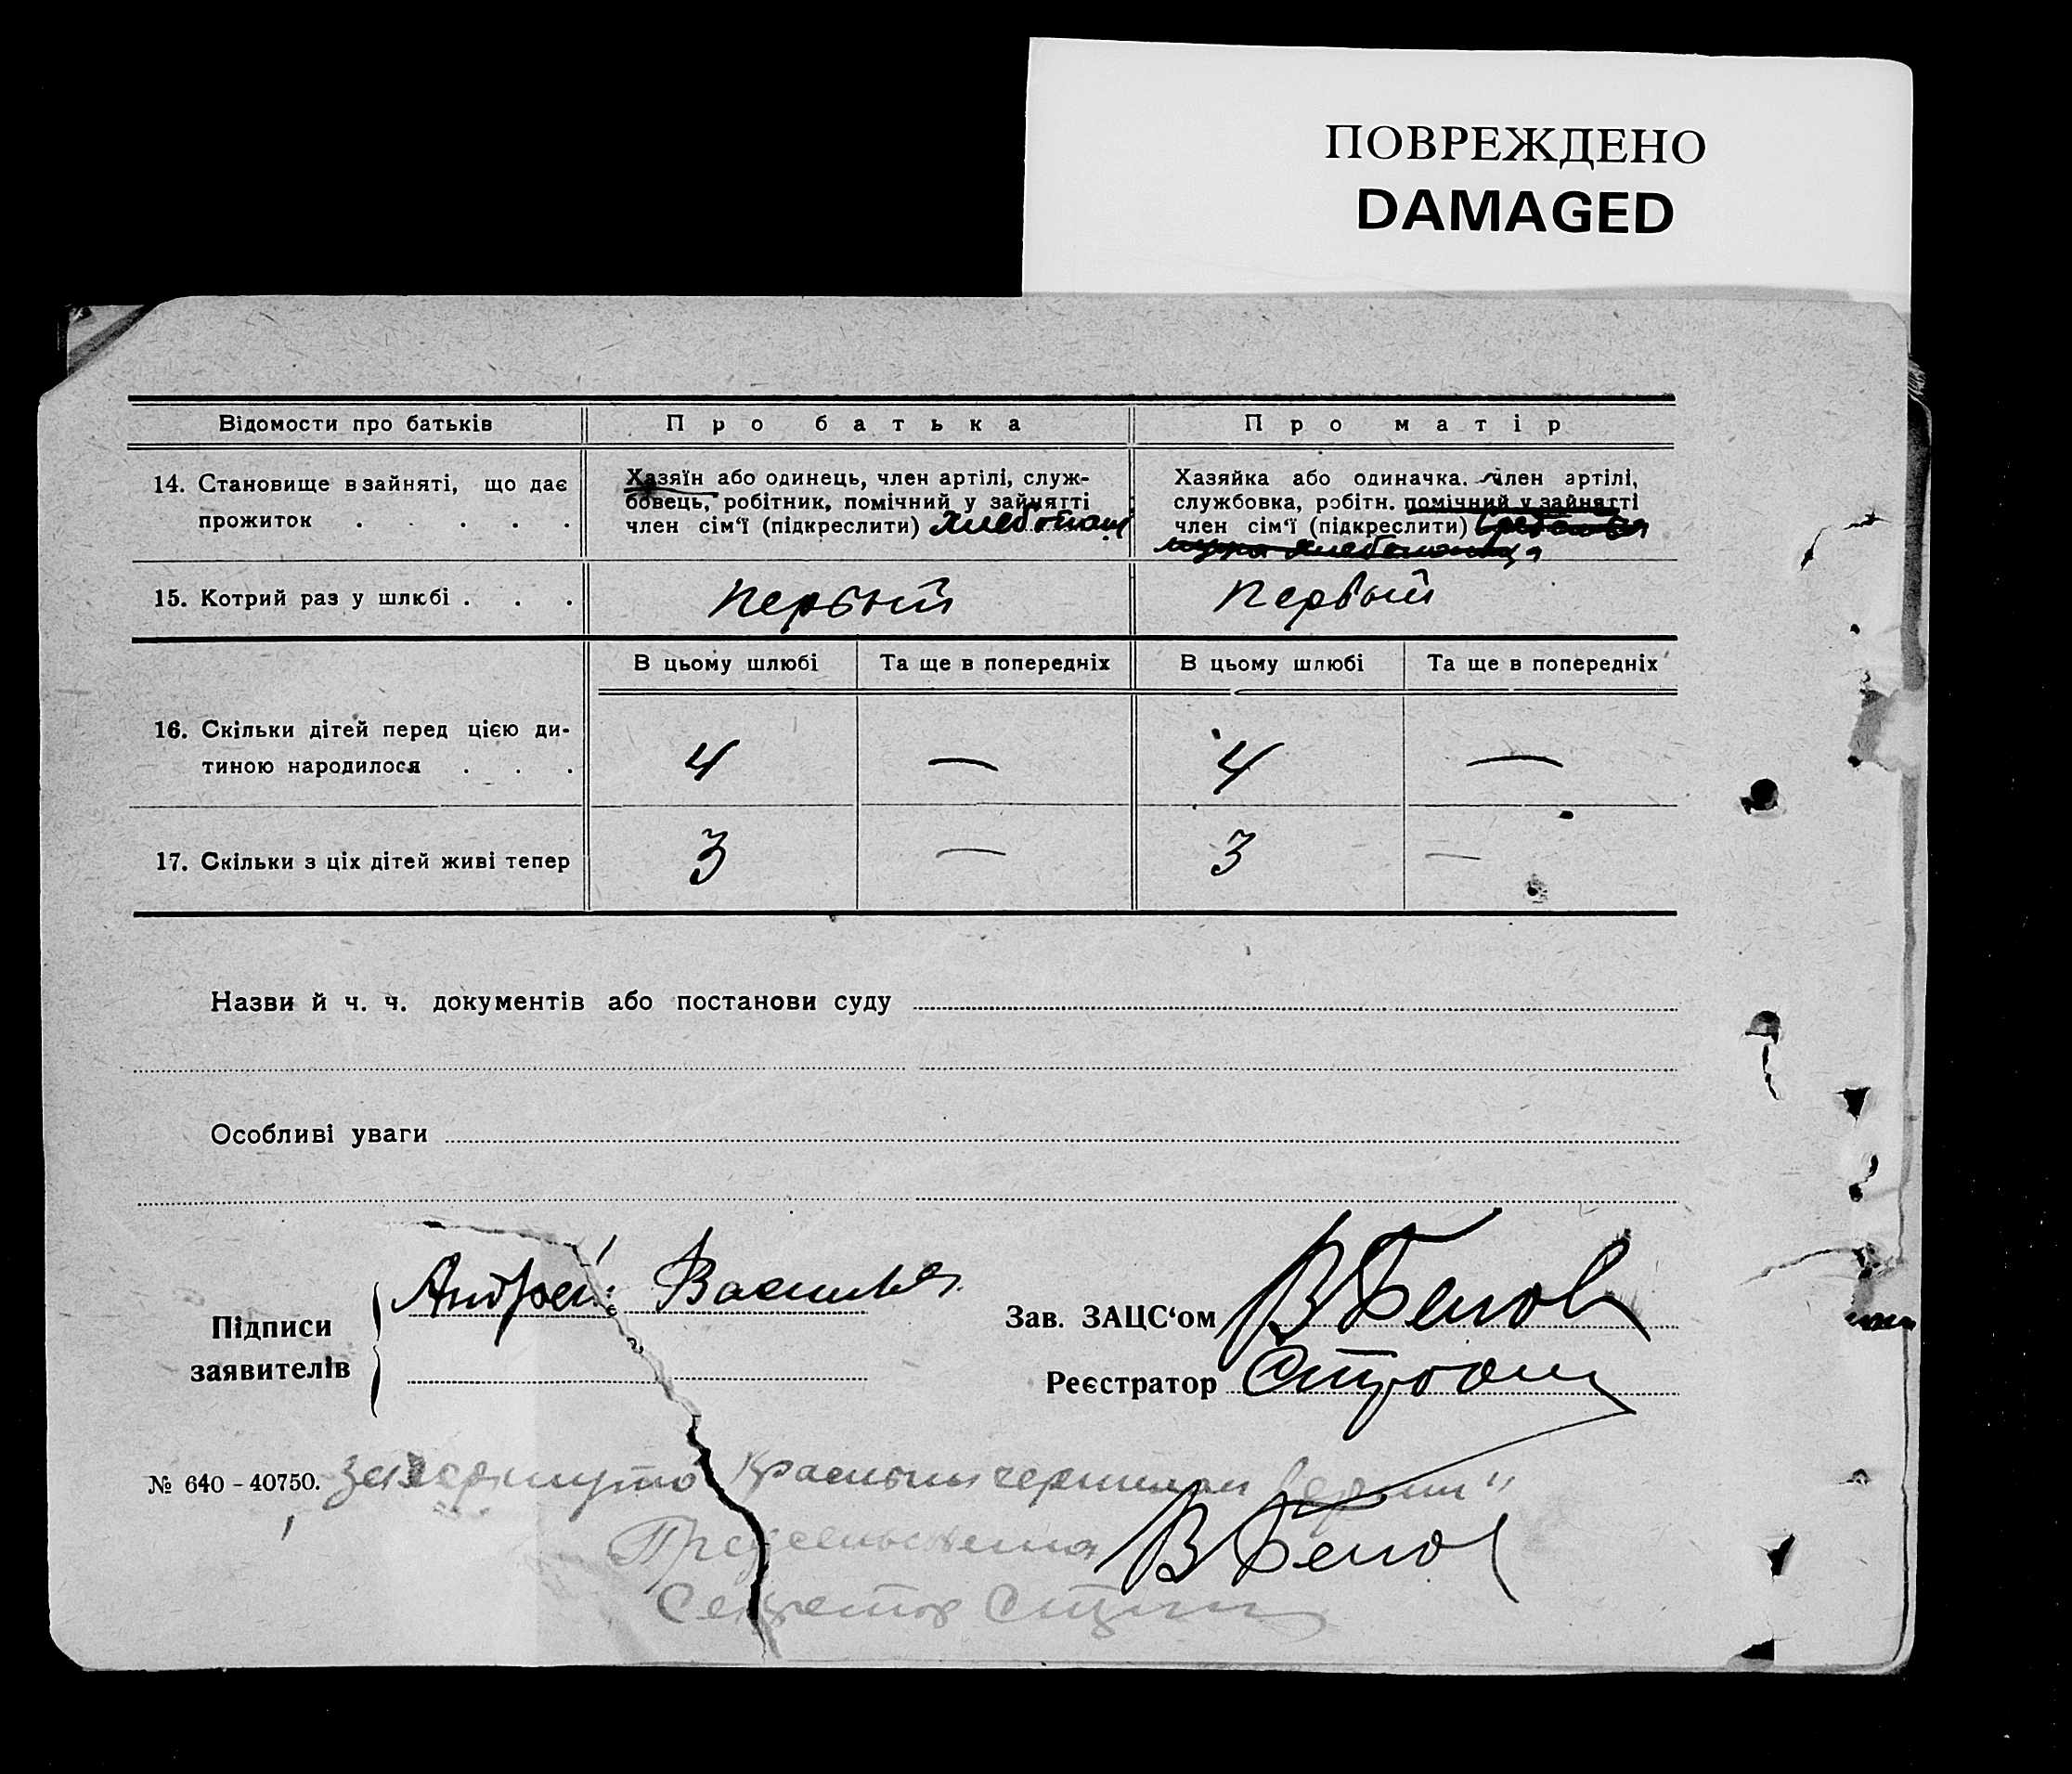 ПОВРЕЖДЕНО
DAMAGED
Відомости про батьків
Про батька
Про матір
14. Становище в зайняті, що дає
прожиток . . . . .
Хазяїн або одинець, член артілі, служ-
бовець, робітник, помічний у зайнятті
член сім‘ї (підкреслити) хлебопаш
Хазяйка або одиначка. член артілі,
службовка, робітн. помічний у зайнятті
член сім‘ї (підкреслити)
15. Котрий раз у шлюбі . . .
Первый
Первый
В цьому шлюбі
Та ще в попередніх
В цьому шлюбі
Та ще в попередніх
16. Скільки дітей перед цією ди-
тиною народилося . . .
4
—
4
—
17. Скільки з ціх дітей живі тепер
3
—
3
—
Назви й ч. ч. документів або постанови суду
Особливі уваги
Підписи
заявителів
Андрей Васильев
Зав. ЗАЦС‘ом ВБелов
Реєстратор
№ 640 - 40750. Зачеркнуто красными чернилам верно"
Предсельсовета ВБелов
Секретар